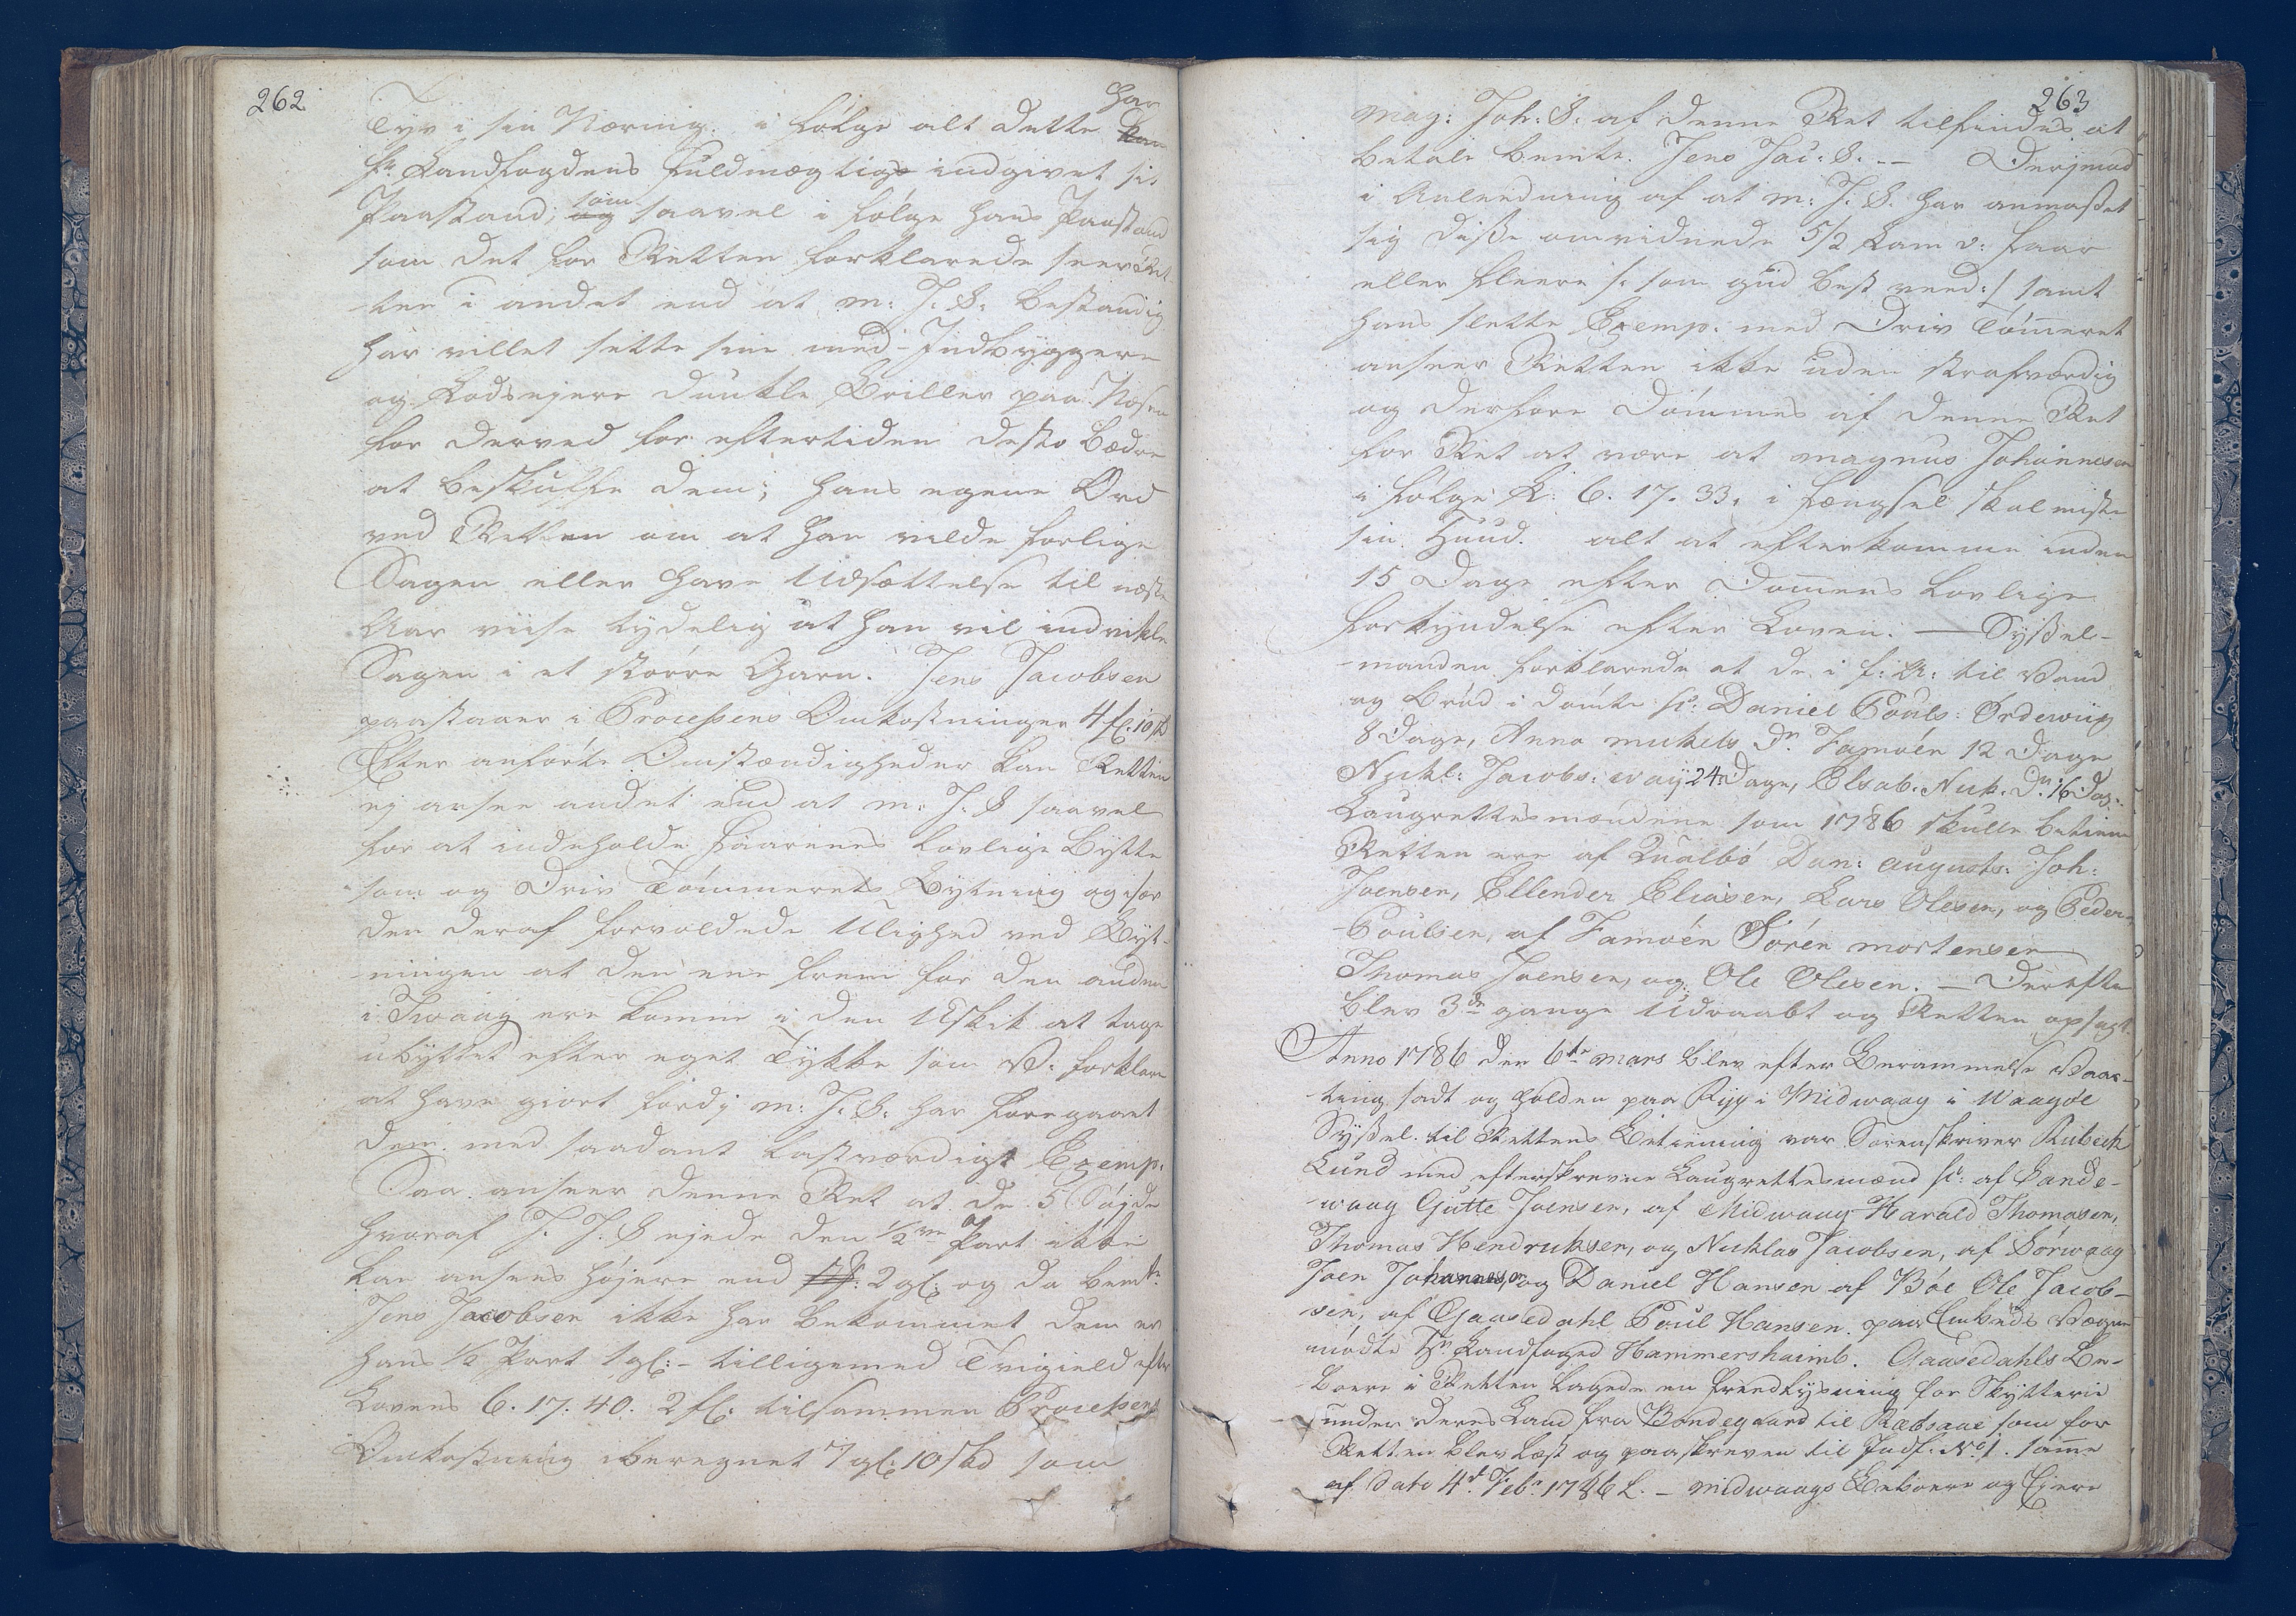 262.
Tyv i sin Næring. i følge alt dette har
Hr. Landfogdens Fuldmægtige indgivet sin
Paastand; som saavel i følge hans Paastand
som det for Retten forklarede seer Ret
ten i andet end at M: J. S: bestandig
har villet sette sine med-Indbyggere
og Lodsejere dunkle Briller paa Næsen
for derved for eftertiden desto bædre
at beskuffe dem; hans egene Ord
ved Retten om at han vilde forlige
Sagen eller have Udsættelse til næste
Aar viise tydelig at han vil indvikle
Sagen i et større Garn. Jens Jacobsen
paastaaer i Processens Omkostninger 4 fl: 10 sk
Efter anførte Omstændigheder kan Retten
ej ansee andet end at M: J. S saavel
for at indeholde Faarenes lovlige Bytte
som og Driv Tømmerets Bytning og især
den deraf forvoldede Ulighed ved Byt-
ningen at den ene frem for den anden
i Twaag ere komne i den Uskik at tage
ubyttet efter eget Tykke som V: forklare
at have giort fordi M: J. S: har foregaaet
dem med saadant lastværdigt Exemp.
Saa anseer denne Ret at de 5 Søjde
hvoraf J. J. S ejede den 1/2ve Part ikke
kan ansees højere end 2 gl: og da bemte
Jens Jacobsen ikke har bekommet dem er
hans 1/2 Part 1 gl: - tilligemed Tvigield efter
Lovens 6. 17. 40. 2 fl: tilsammen Processens
Omkostning iberegnet 7 gl: 10 skd som
263
Mag: Joh: S: af denne Ret tilfindes at
betale bemte. Jens Jac: S: -- Derjmod
i Anleedning af at M: J. S. har anmasset
sig disse omvidnede 5/2 Lam v: faar
eller fleere /: som gud best veed :/ samt
hans slette Exemp: med Driv Tømeret
anseer Retten ikke uden strafværdig
og derfore dømmes af denne Ret
for Ret at være at Magnus Johannesen
i følge L: 6. 17. 33. i fængsel skal miste
sin Huud. alt at efterkomme inden
15 Dage efter Domens lovlige
Forkyndelse efter Loven. — Syssel-
manden forklarede at de i f: A: til Vand
og brød i dømte sc: Daniel Pouls: Ordewiig
8 Dage, Anna Mickels Dr. Famøen 12 Dage
Nickl: Jacobs: Waÿ 24 Dage, Elsab. Nick. Dr. 16 Dag:
Laugrettesmændene som 1786 skulle betiene
Retten ere af Qualbø Dan: Augusts: Joh:
Joensen, Ellender Eliasen, Lars Olesen, og Peder
Poulsen, af Famøen Søren Mortensen
Thomas Joensen, og Ole Olesen. — Derefter
blev 3de gange Udraabt og Retten opsagt.
Anno 1786 den 6te Mars blev efter Berammelse Vaar-
ting sadt og holden paa Ryg i Midwaag i Waagøe
Syssel. til Rettens Betiening var Sorenskriver Rubech
Lund med efterskrevne Laugrettesmænd sc: af Sande-
waag Gutte Joensen, af Midwaag Harald Thomasen,
Thomas Hendriksen, og Nicklas Jacobsen, af Sørwaag
Joen Johannesen, og Daniel Hansen af Bøe Ole Jacob-
sen, af Gaasedahl Poul Hansen. paa Embeds Vægne
mødte Hr. Landfoged Hammershaimb. Gaasedahls Be-
boere i Retten lagede en Fredlysning for Skytterie
under deres Land fra Bondegaard til Ræbsaae som for
Retten blev læst og paaskreven til Indf: No. 1. samme
af Dato 4d. Febr. 1786 L. - Midwaags Beboere og Ejere